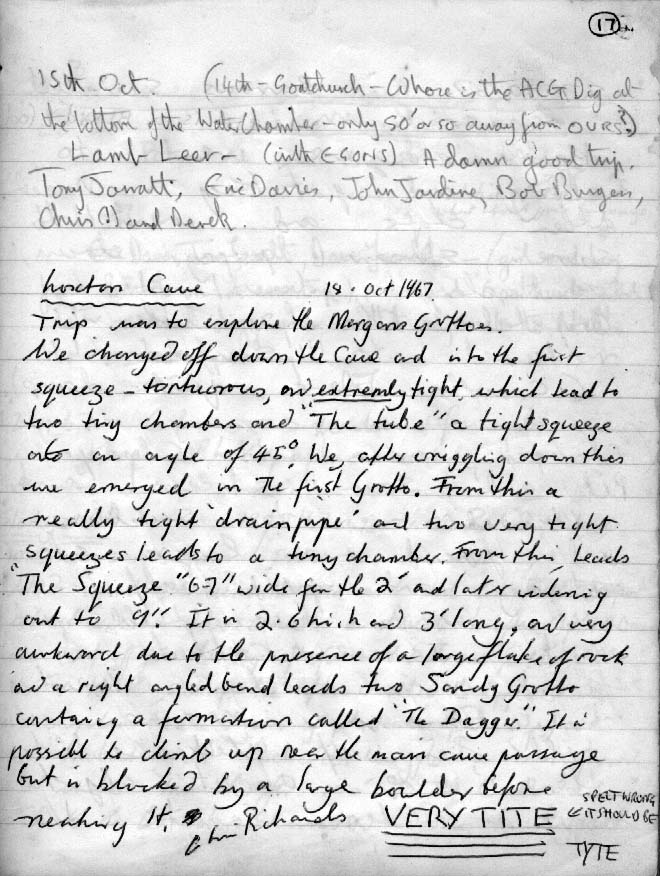 17
15th Oct. (14th - Goatchurch - Where is the ACG Dig at
the bottom of the Water Chamber - only 50' or so away from OURS?)
Lamb Leer - (with EGONS) A damn good trip.
Tony Jarratt, Eric Davies, John Jardine, Bob Burgess,
Chris (!) and Derek.
Loxton Cave 18. Oct 1967.
Trip was to explore the Morgans Grottoes.
We changed off down the Cave and into the first
squeeze - tortuorous, and extremly tight, which lead to
two tiny chambers and "The tube" a tight squeeze
at an angle of 45°. We, after wriggling down this
we emerged in The first Grotto. From this a
really tight 'drainpipe' and two very tight
squeezes leads to a tiny chamber. From this, leads
"The Squeeze" 6-7" wide for the 2' and later widening
out to 9". It is 2.6 high and 3' long, and very
awkward due to the presence of a large flake of rock
and a right angled bend leads two Sandy Grotto
containg a formation called "The Dagger." It is
possible to climb up near the main cave passage
but is blocked by a large boulder before
reaching it. Chris Richards VERY TITE
SPELT WRONG
IT SHOULD BE
TYTE